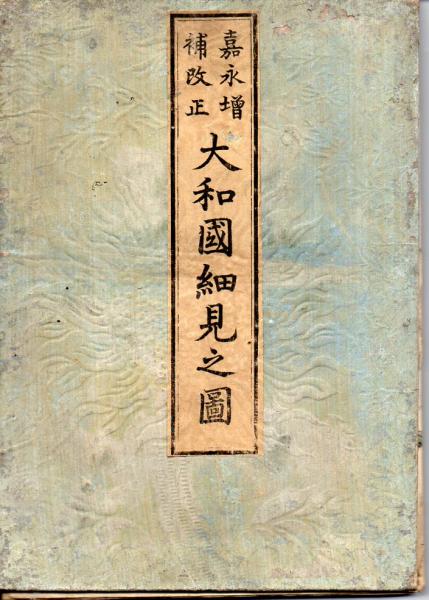 嘉永增
補改正
大和國細見之圖